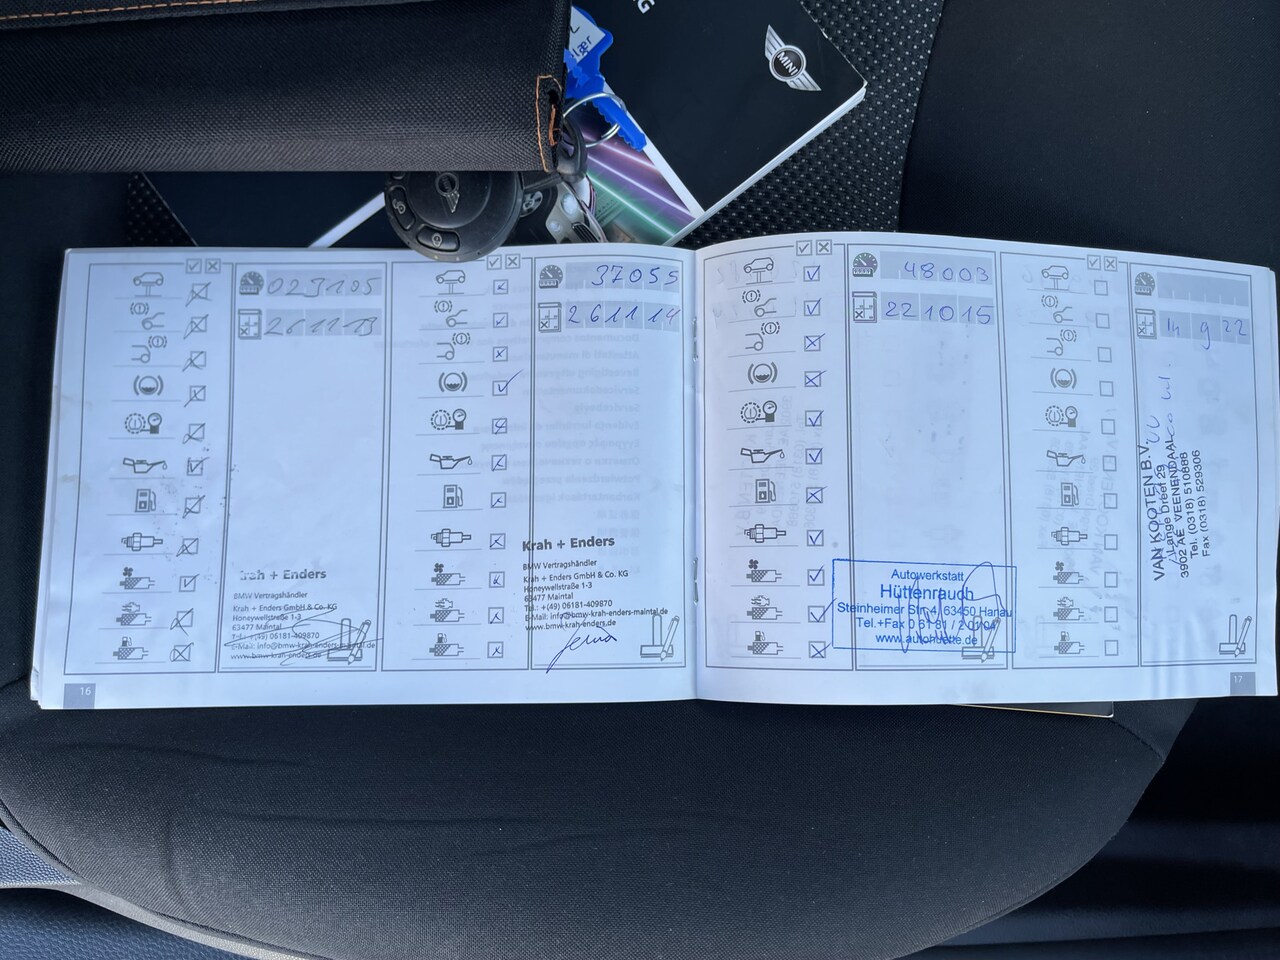 G
MINI
023105
261113
Krah + Enders
BMW Vertragshändler
Krah + Enders GmbH & Co. KG
Honeywellstraße 1-3
63477 Maintal
Tel.: +(49) 06181-409870
E-Mail: info@bmw-krah-enders-maintal.de
www.bmw-krah-enders.de
16
37055
261114
Krah + Enders
BMW Vertragshändler
Krah + Enders GmbH & Co. KG
Honeywellstraße 1-3
63477 Maintal
Tel.: +(49) 06181-409870
E-Mail: info@bmw-krah-enders-maintal.de
www.bmw-krah-enders.de
48003
221015
Autowerkstatt
Hüttenrauch
Steinheimer Str. 4, 63450 Hanau
Tel.+Fax 0 61 81 / 2 01 04
www.autohuette.de
14 9 22
VAN KOOTEN B.V.
Lange Dreef 29
3902 AE VEENENDAAL
Tel. (0318) 510888
Fax (0318) 529306
17